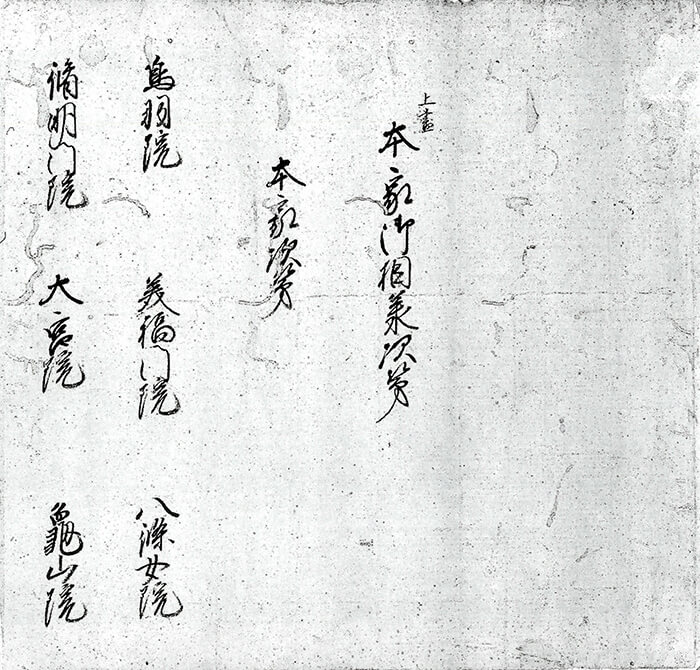 上書
本家御相承次第
本家次第
鳥羽院 美福門院 八條女院
脩明門院 大宮院 龜山院